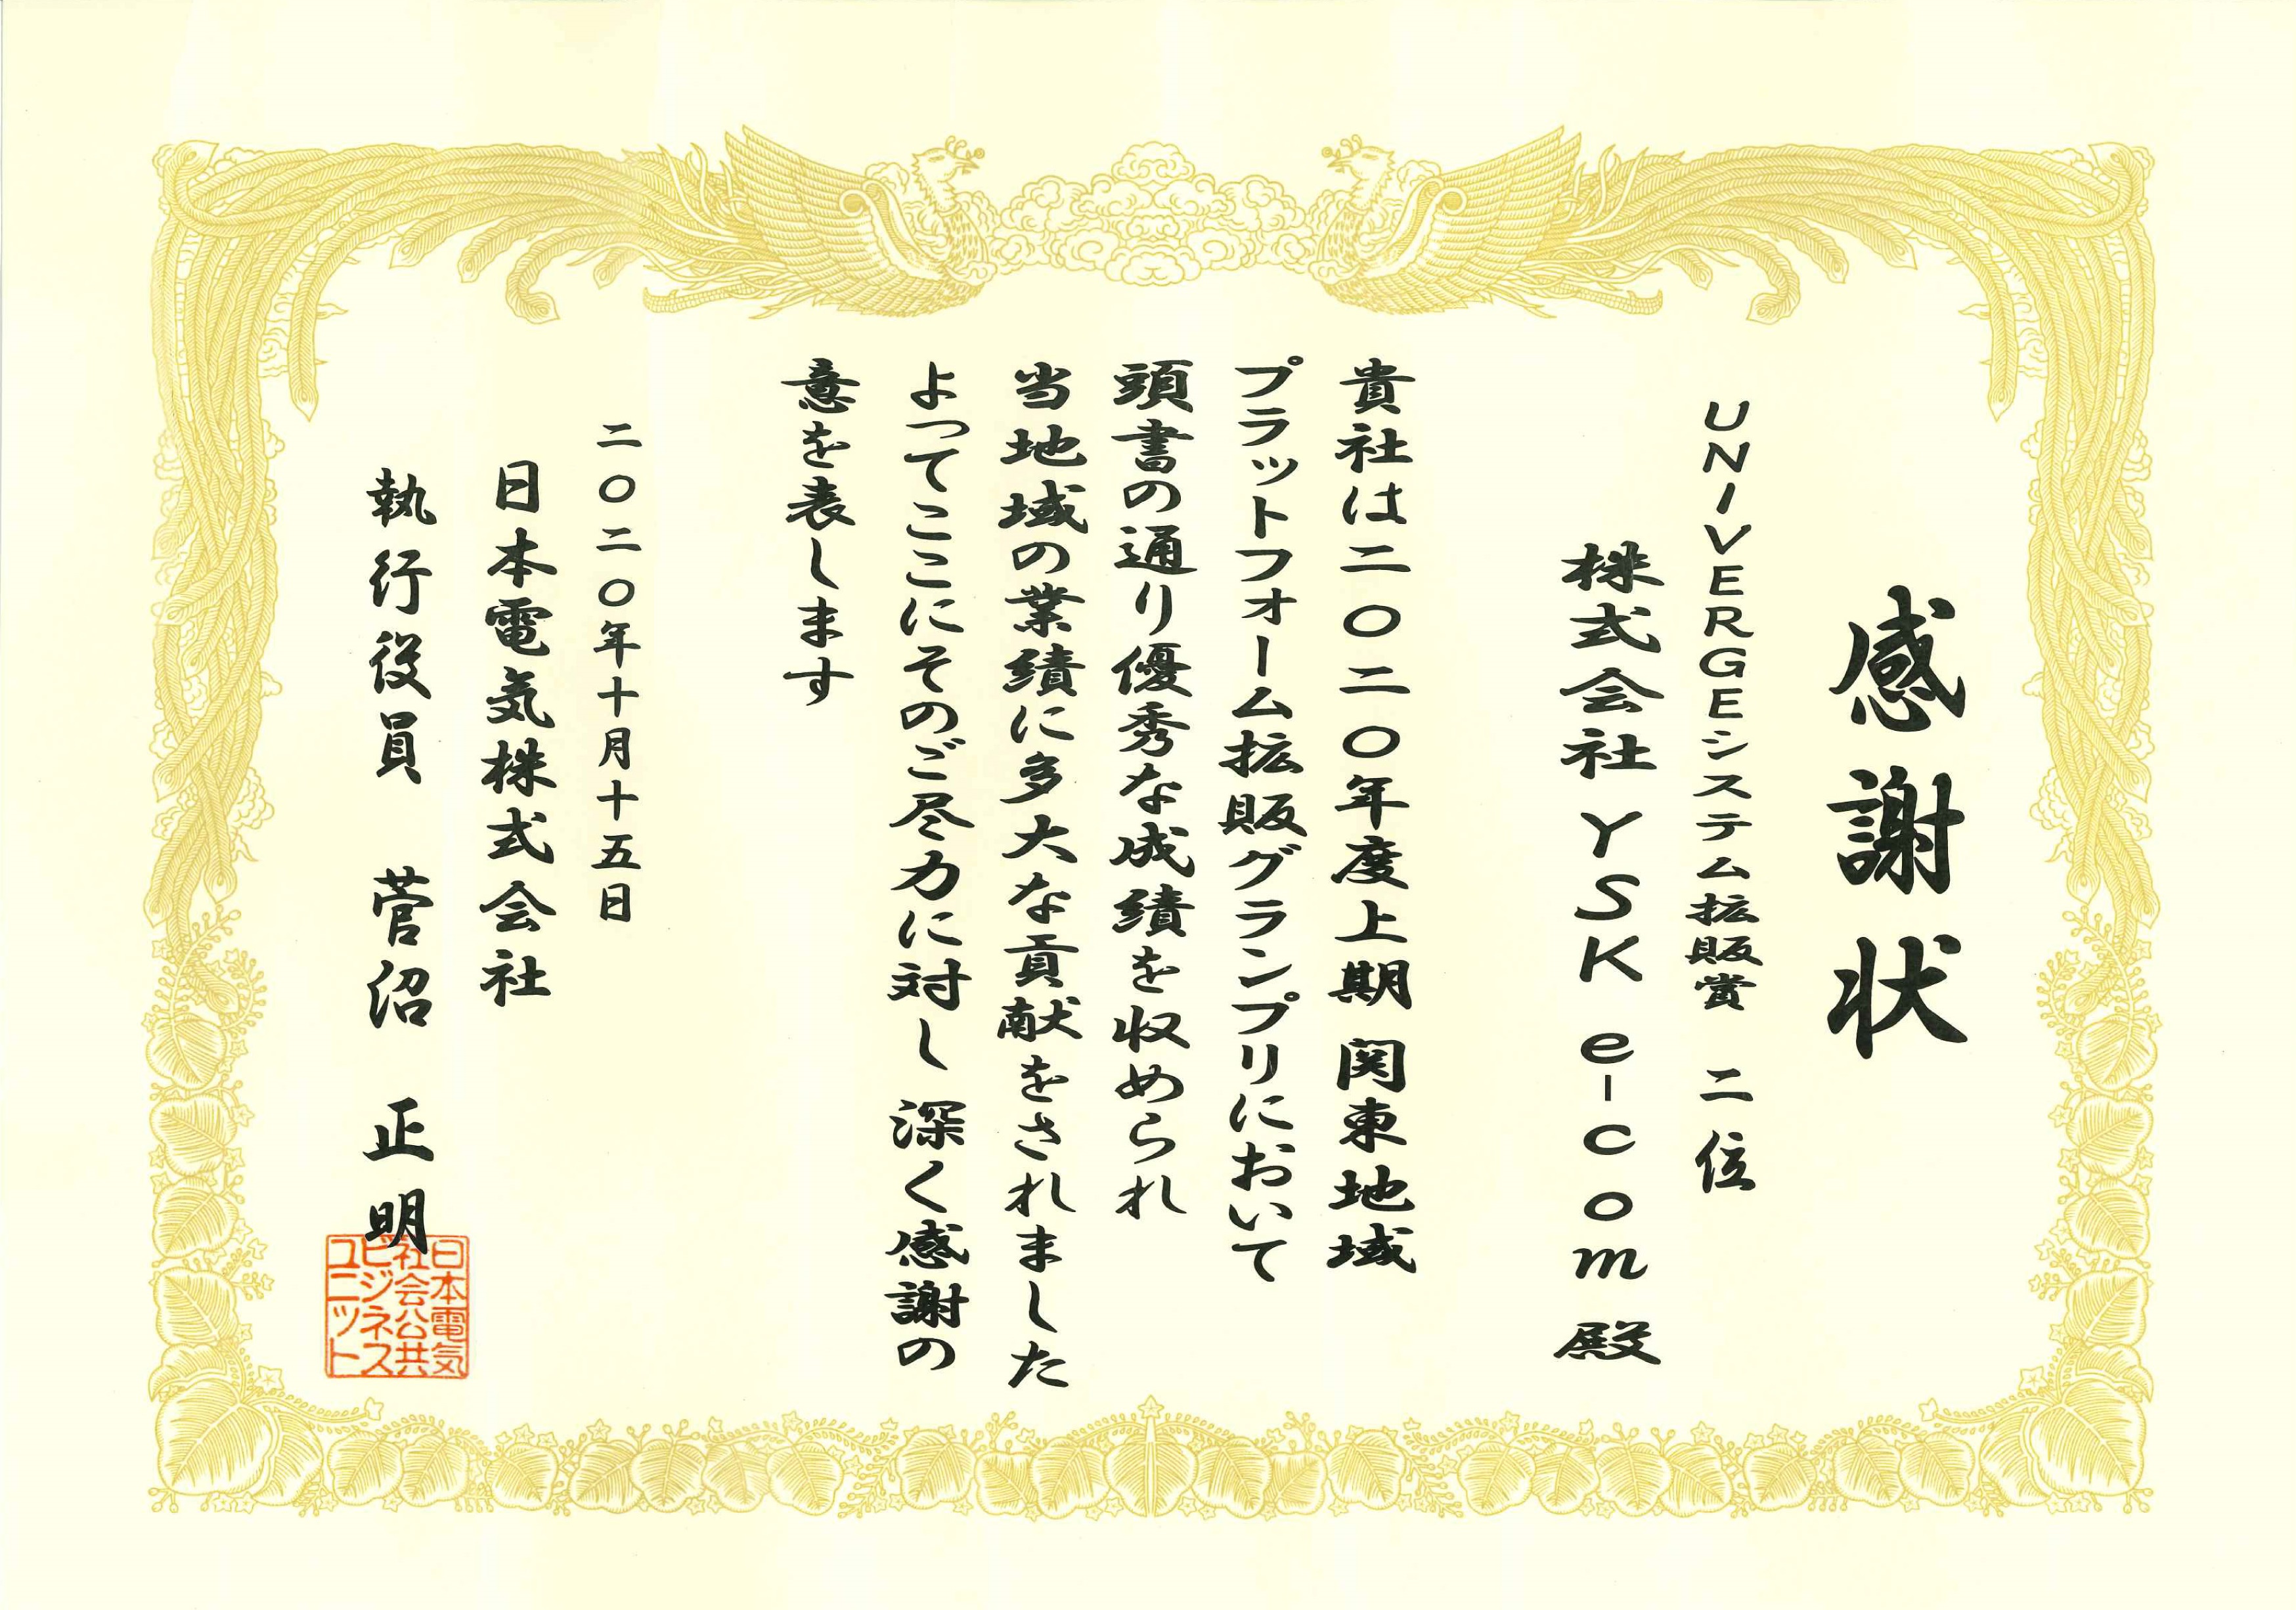 感謝状
UNIVERGEシステム拡販賞 二位
株式会社 YSK e-com 殿
貴社は二〇二〇年度上期 関東地域
プラットフォーム拡販グランプリにおいて
頭書の通り優秀な成績を収められ
当地域の業績に多大な貢献をされました
よってここにそのご尽力に対し 深く感謝の
意を表します
二〇二〇年十月十五日
日本電気株式会社
執行役員 菅沼 正明
日本電気
社会公共
ビジネス
ユニット